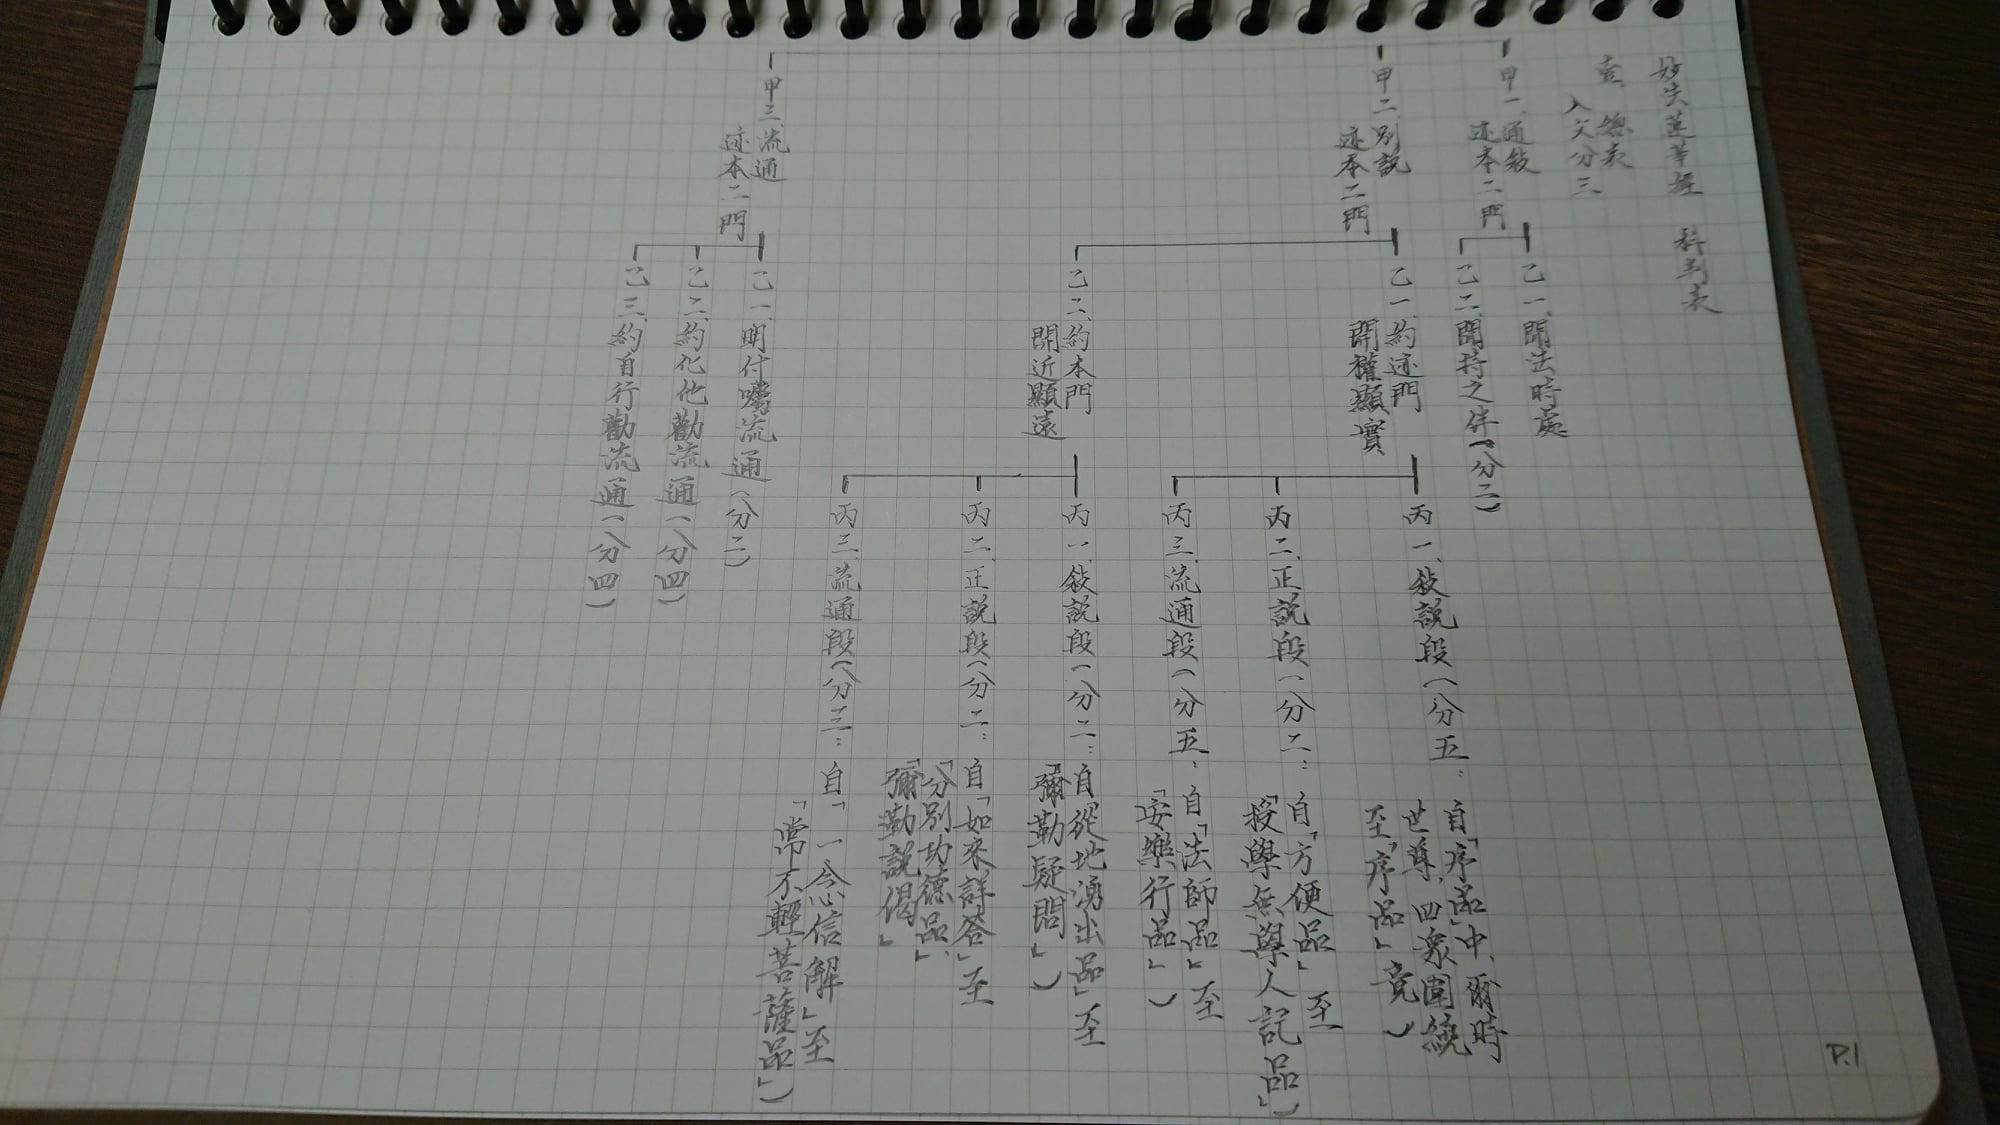 妙法蓮華經　科判表
壹、總表
入文分三
甲一、通敍
迹本二門
乙一、聞法時處
乙二、聞持之伴（分二）
甲二、別說
迹本二門
乙一、約迹門
開權顯實
丙一、敍說段（分五：自「序品」中，爾時
世尊，四眾圍繞
至「序品」竟）
丙二、正說段（分二：自「方便品」至
「授學無學人記品」）
丙三、流通段（分五：自「法師品」至
「安樂行品」）
乙二、約本門
開近顯遠
丙一、敍說段（分二：自「從地湧出品」至
「彌勒疑問」）
丙二、正說段（分二：自「如來詳答」至
「分別功德品」，
「彌勒說偈」
丙三、流通段（分三：自「一念信解」至
「常不輕菩薩品」）
甲三、流通
迹本二門
乙一、明付囑流通（分二）
乙二、約化他勸流通（分四）
乙三、約自行勸流通（分四）
P.1